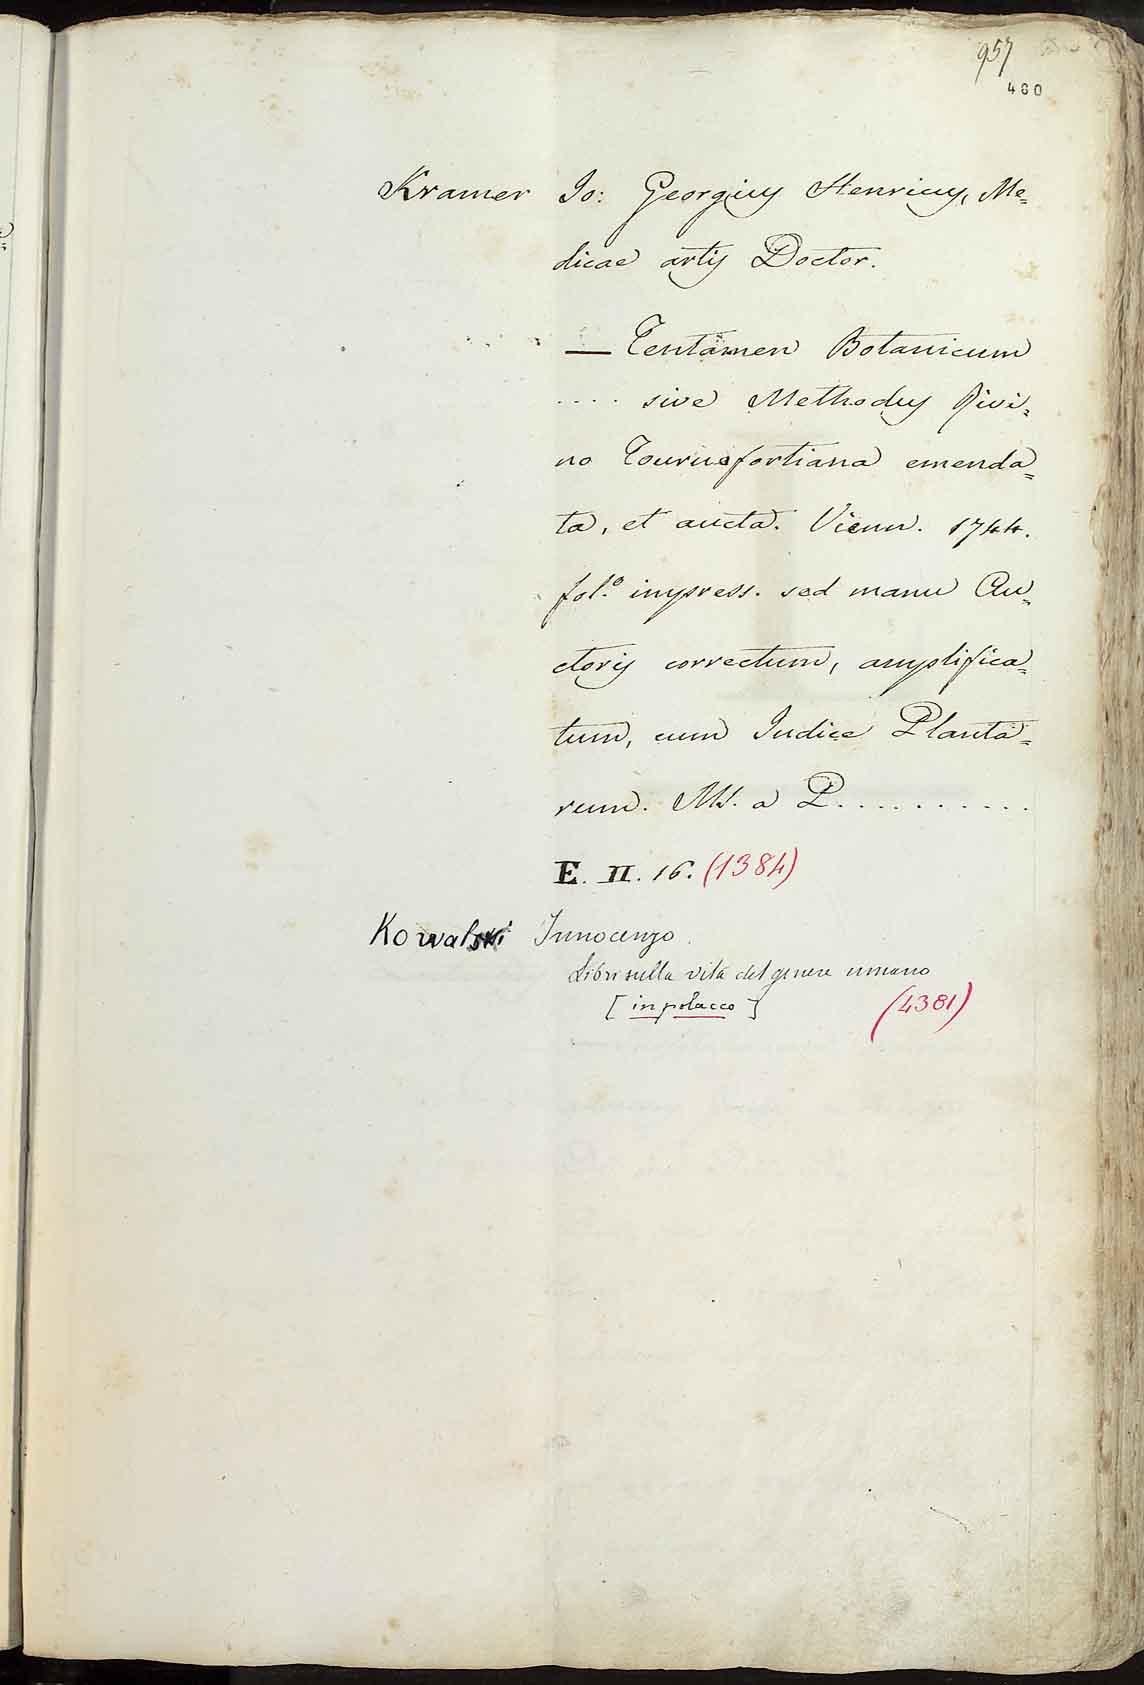 957
480
Kramer Jo: Georgius Henricus, Me=
dicae artis Doctor.
— Tentamen Botanicum
.... sive Methodus Rivi=
no Tournefortiana emenda=
ta, et aucta. Vienn. 1744.
fol.º impress. sed manu Au=
ctoris correctum, amplifica=
tum, cum Indice Planta=
rum. MS. a P...........
E. II. 16. (1384)
Kowalski Innocenzo.
Libri sulla vita del genere umano
[in polacco] (4381)